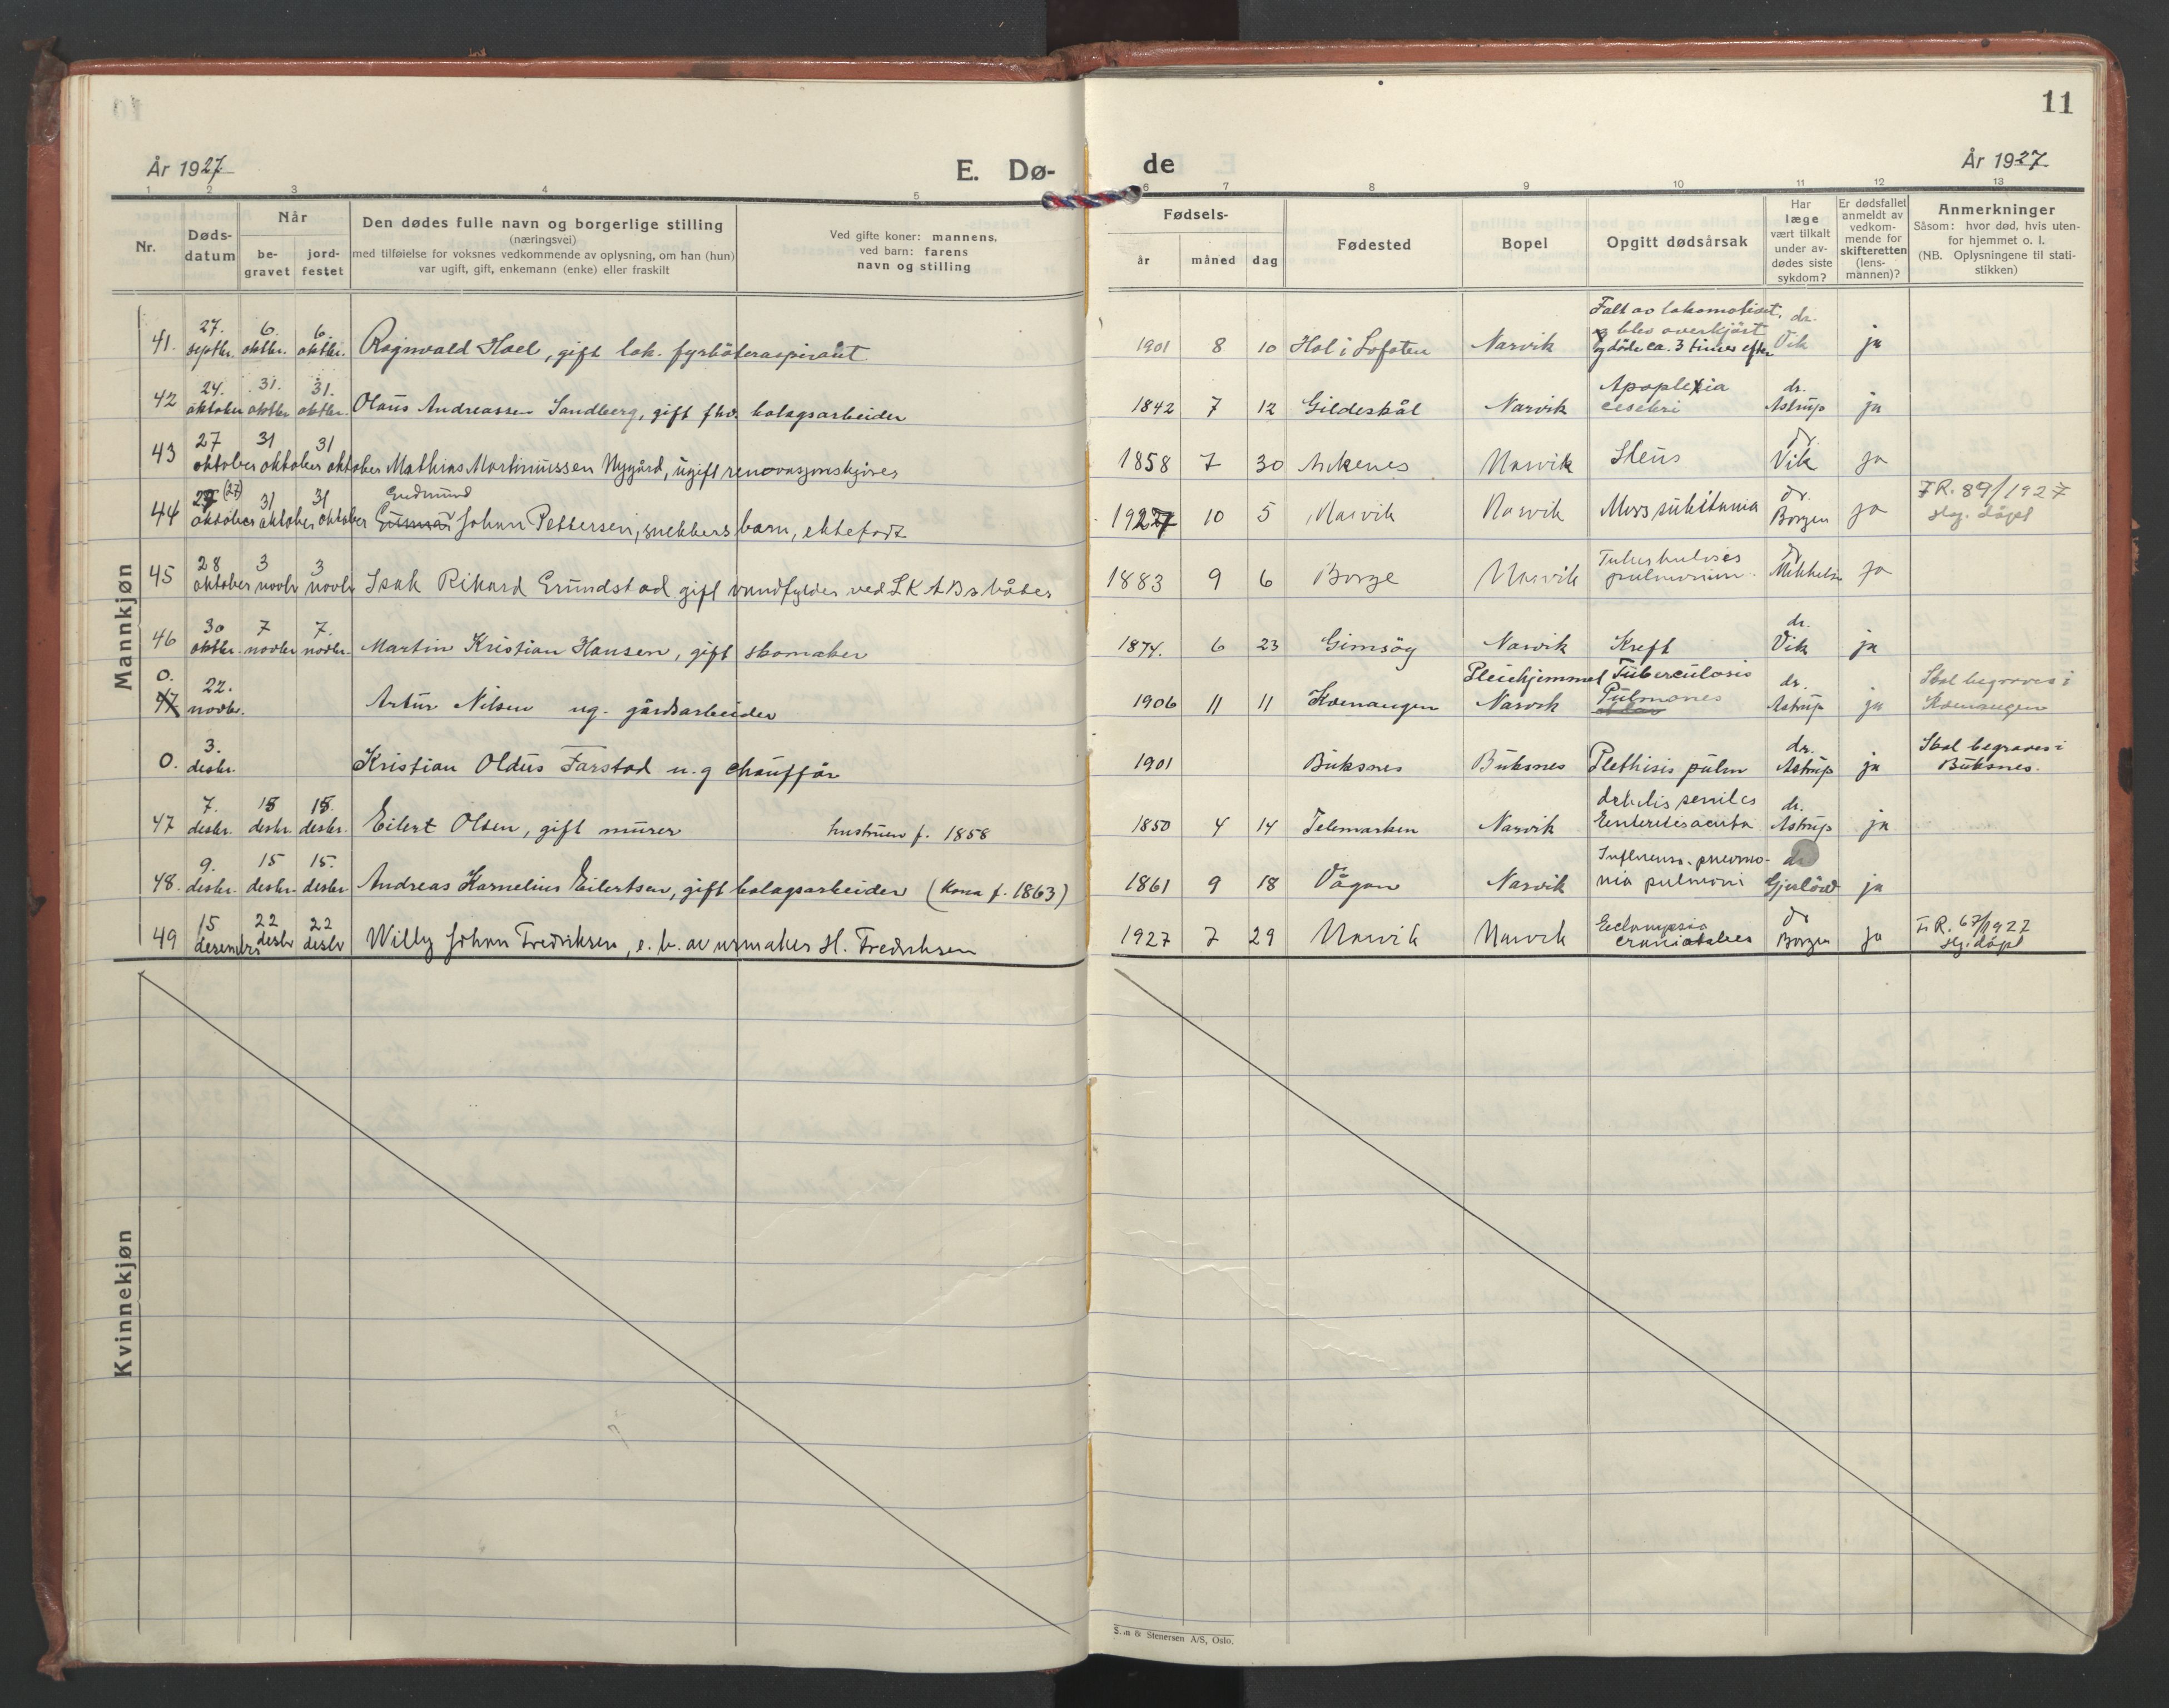 11
År 1927
E. Dø-
de
År 1927
1 2 3 4 5 6 7 8 9 10 11 12 13
Nr.
Døds-
datum
Når
be-
gravet
jord-
festet
Den dødes fulle navn og borgerlige stilling
(næringsvei)
med tilføielse for voksnes vedkommende av oplysning, om han (hun)
var ugift, gift, enkemann (enke) eller fraskilt
Ved gifte koner: mannens,
ved barn: farens
navn og stilling
Fødsels-
år måned dag
Fødested
Bopel
Opgitt dødsårsak
Har
læge
vært tilkalt
under av-
dødes siste
sykdom?
Er dødsfallet
anmeldt av
vedkom-
mende for
skifteretten
(lens-
mannen)?
Anmerkninger
Såsom: hvor død, hvis uten-
for hjemmet o. l.
(NB. Oplysningene til stati-
stikken)
Mannkjøn
41. 27. septbr. 6. oktbr. 6. oktbr. Ragnvald Hoel, gift lok. fyrbøteraspirant 1901 8 10 Hol i Lofoten Narvik Falt av lokomotivet, og blev overkjørt og døde ca. 3 timer efter dr. Vik ja
42 24. oktober 31. oktbr 31. oktbr. Olaus Andreassen Sandberg, gift fhv. bolagsarbeider 1842 7 12 Gildeskål Narvik Apoplexia cerebri dr. Astrup ja
43 27 oktober 31 oktober 31 oktober Mathias Martinussen Nygård, ugift renovasjonskjører 1858 7 30 Ankenes Narvik Ileus dr Vik ja
44 27 (27) oktober 31 oktober 31 oktober Gudmund Gunnar Johan Pettersen, snekkers barn, ektefødt 1927 10 5 Narvik Narvik Mors subitania dr. Borgen ja F.R. 89/1927 Hg. døpt
45 28 oktober 3 novbr 3 novbr Isak Rikard Grundstad gift vandfylder ved LKABs båter 1883 9 6 Borge Narvik Tuberkuloses pulmonum. dr Mikkelsen ja
46 30 oktbr. 7 novbr 7. novbr. Martin Kristian Hansen, gift skomaker 1874. 6 23 Gimsøy Narvik Kreft dr. Vik ja
0. 47 22. novbr. Artur Nilsen ug. gårdsarbeider 1906 11 11 Kvenangen Pleiehjemmet Narvik Tuberculosis Pulmones dr. Astrup ja Skal begraves i Kvenangen
0. 3. desbr. Kristian Oldus Farstad u.g chauffør 1901 Buksnes Buksnes Plethisis pulm dr. Astrup ja Skal begraves i Buksnes.
47 7. desbr. 15 desbr. 15. desbr. Eilert Olsen, gift murer hustruen f. 1858 1850 4 14 Telemarken Narvik debilis seniles Eenteritis acuta dr. Astrup ja
48. 9. desbr. 15 desbr. 15. desbr Andreas Kornelius Eilertsen, gift bolagsarbeider (Kona f. 1863) 1861 9 18 Vågan Narvik Influensa-pneumo- nia pulmoni dr Gjerløw ja
49 15 desember 22 desbr 22 desbr Willy Johan Fredriksen, e. b. av urmaker H. Fredriksen 1927 7 29 Narvik Narvik Eclampsia craniotabes dr Borgen ja F.R. 67/1927 Hg. døpt
Kvinnekjøn
& Stenersen A/S, Oslo.